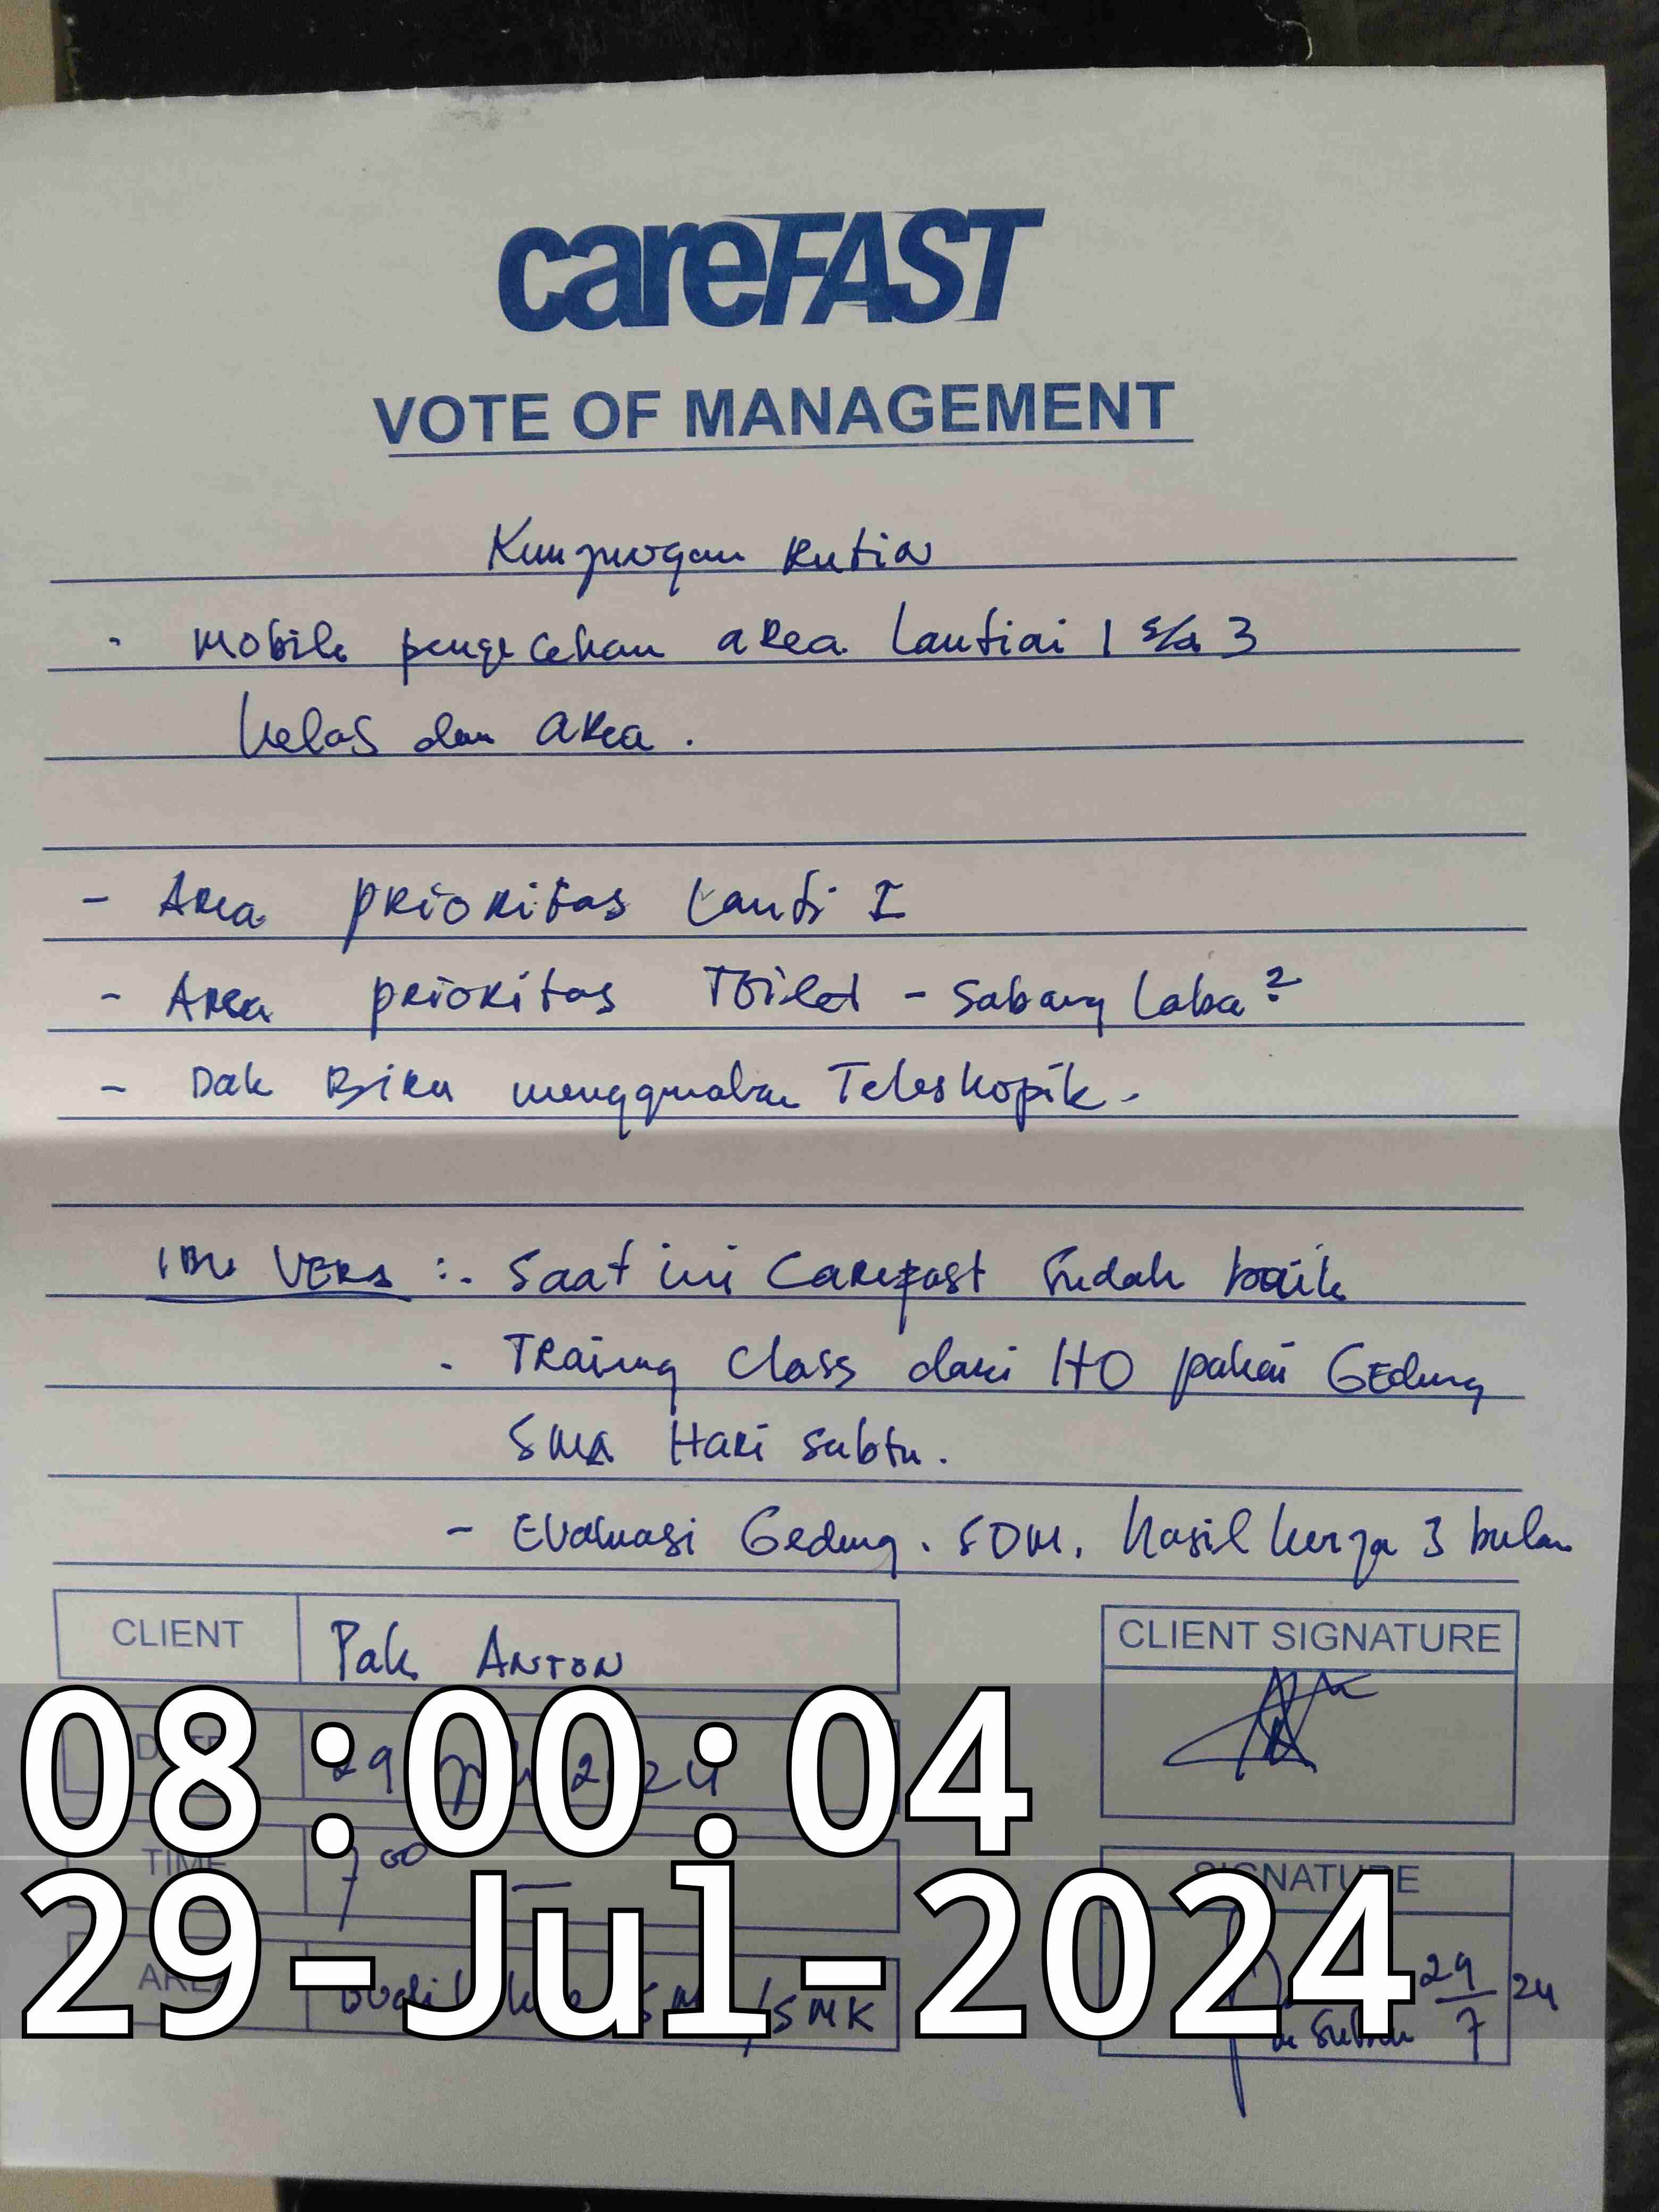 careFAST
VOTE OF MANAGEMENT
Kunjungan Rutin
- Mobile pengecekan area Lantiai 1 s/d 3
Kelas dan area.
- Area prioritas Lanti I
- Area prioritas Toilet - Sabang Laba²
- Dak Biru menggunakan Teleskopik.
IBU VERA :. Saat ini Carefast Sudah baik
- Training Class dari HO pakai GEdung
SMA Hari Sabtu.
- Evaluasi Gedung. SDM. Hasil kerja 3 bulan
CLIENT Pak ANTON
CLIENT SIGNATURE
DATE 29 2024
TIME 7 00 —
SIGNATURE
AREA /SMK
29/7 24
08:00:04
29-Jul-2024